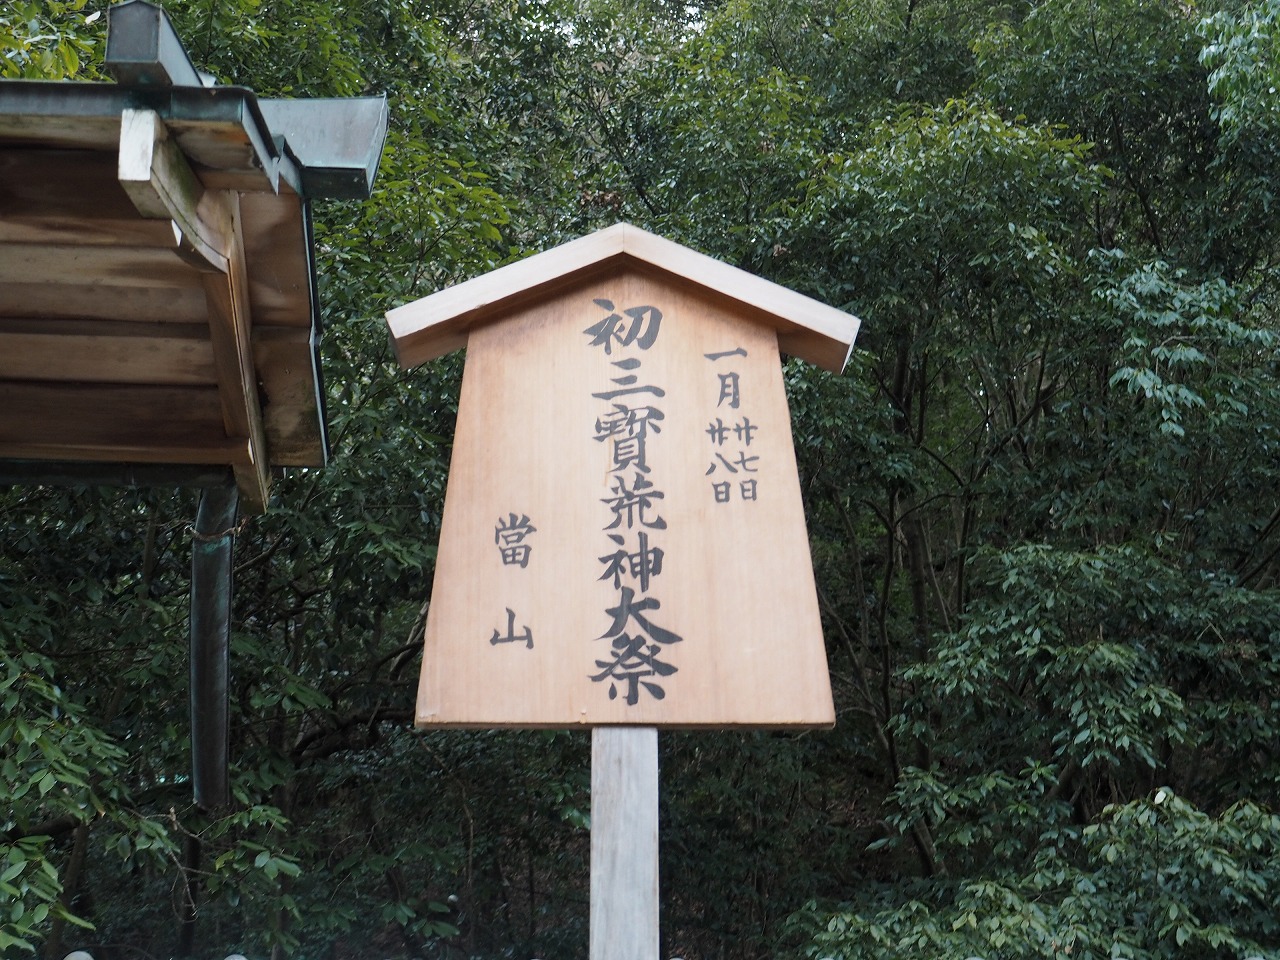 一月
廿七日
廿八日
初三寳荒神大祭
當山